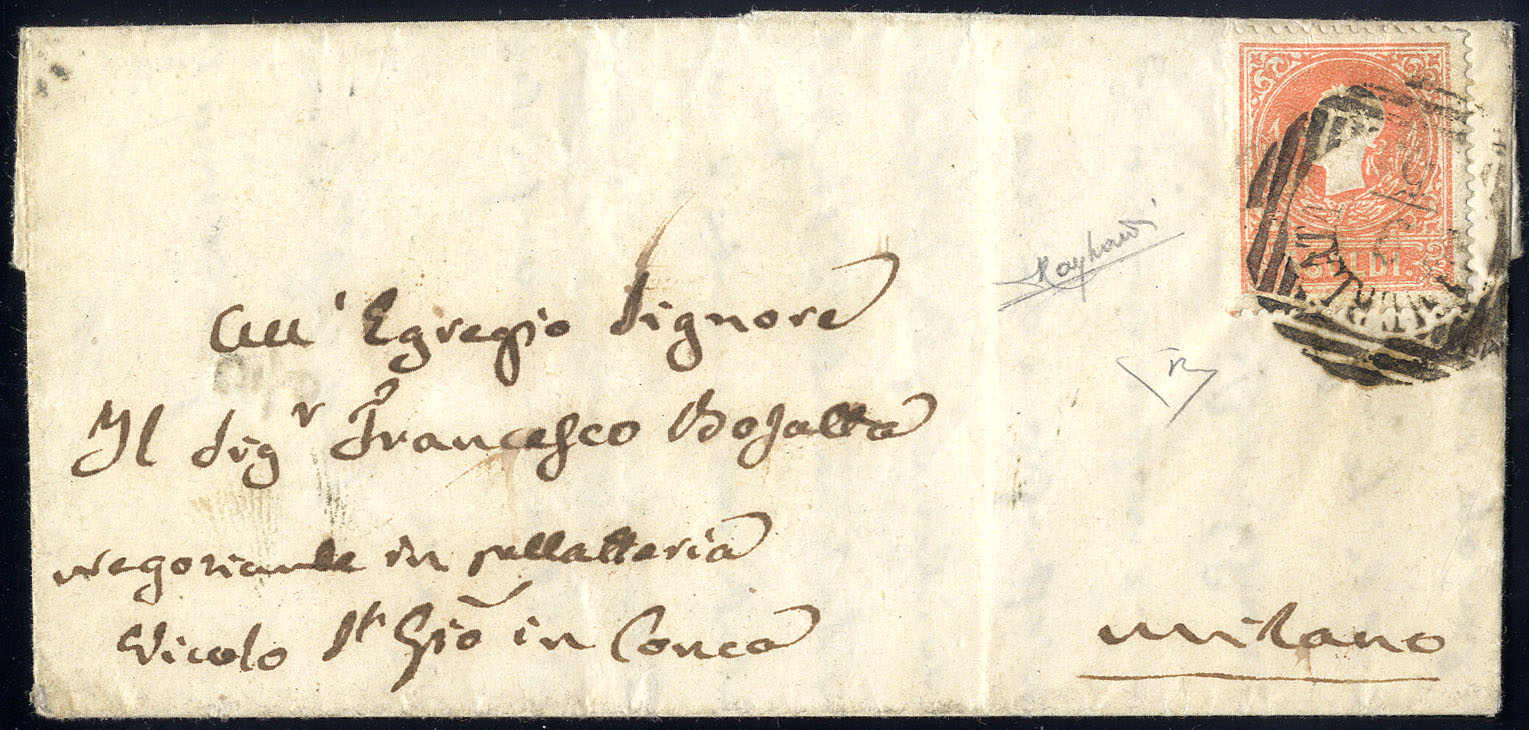 All' Egregio Signore
Il Sig.r Francesco Bosatta
negoziante in pellatteria
Vicolo St Gio in Conca
Milano
SOLDI.
R